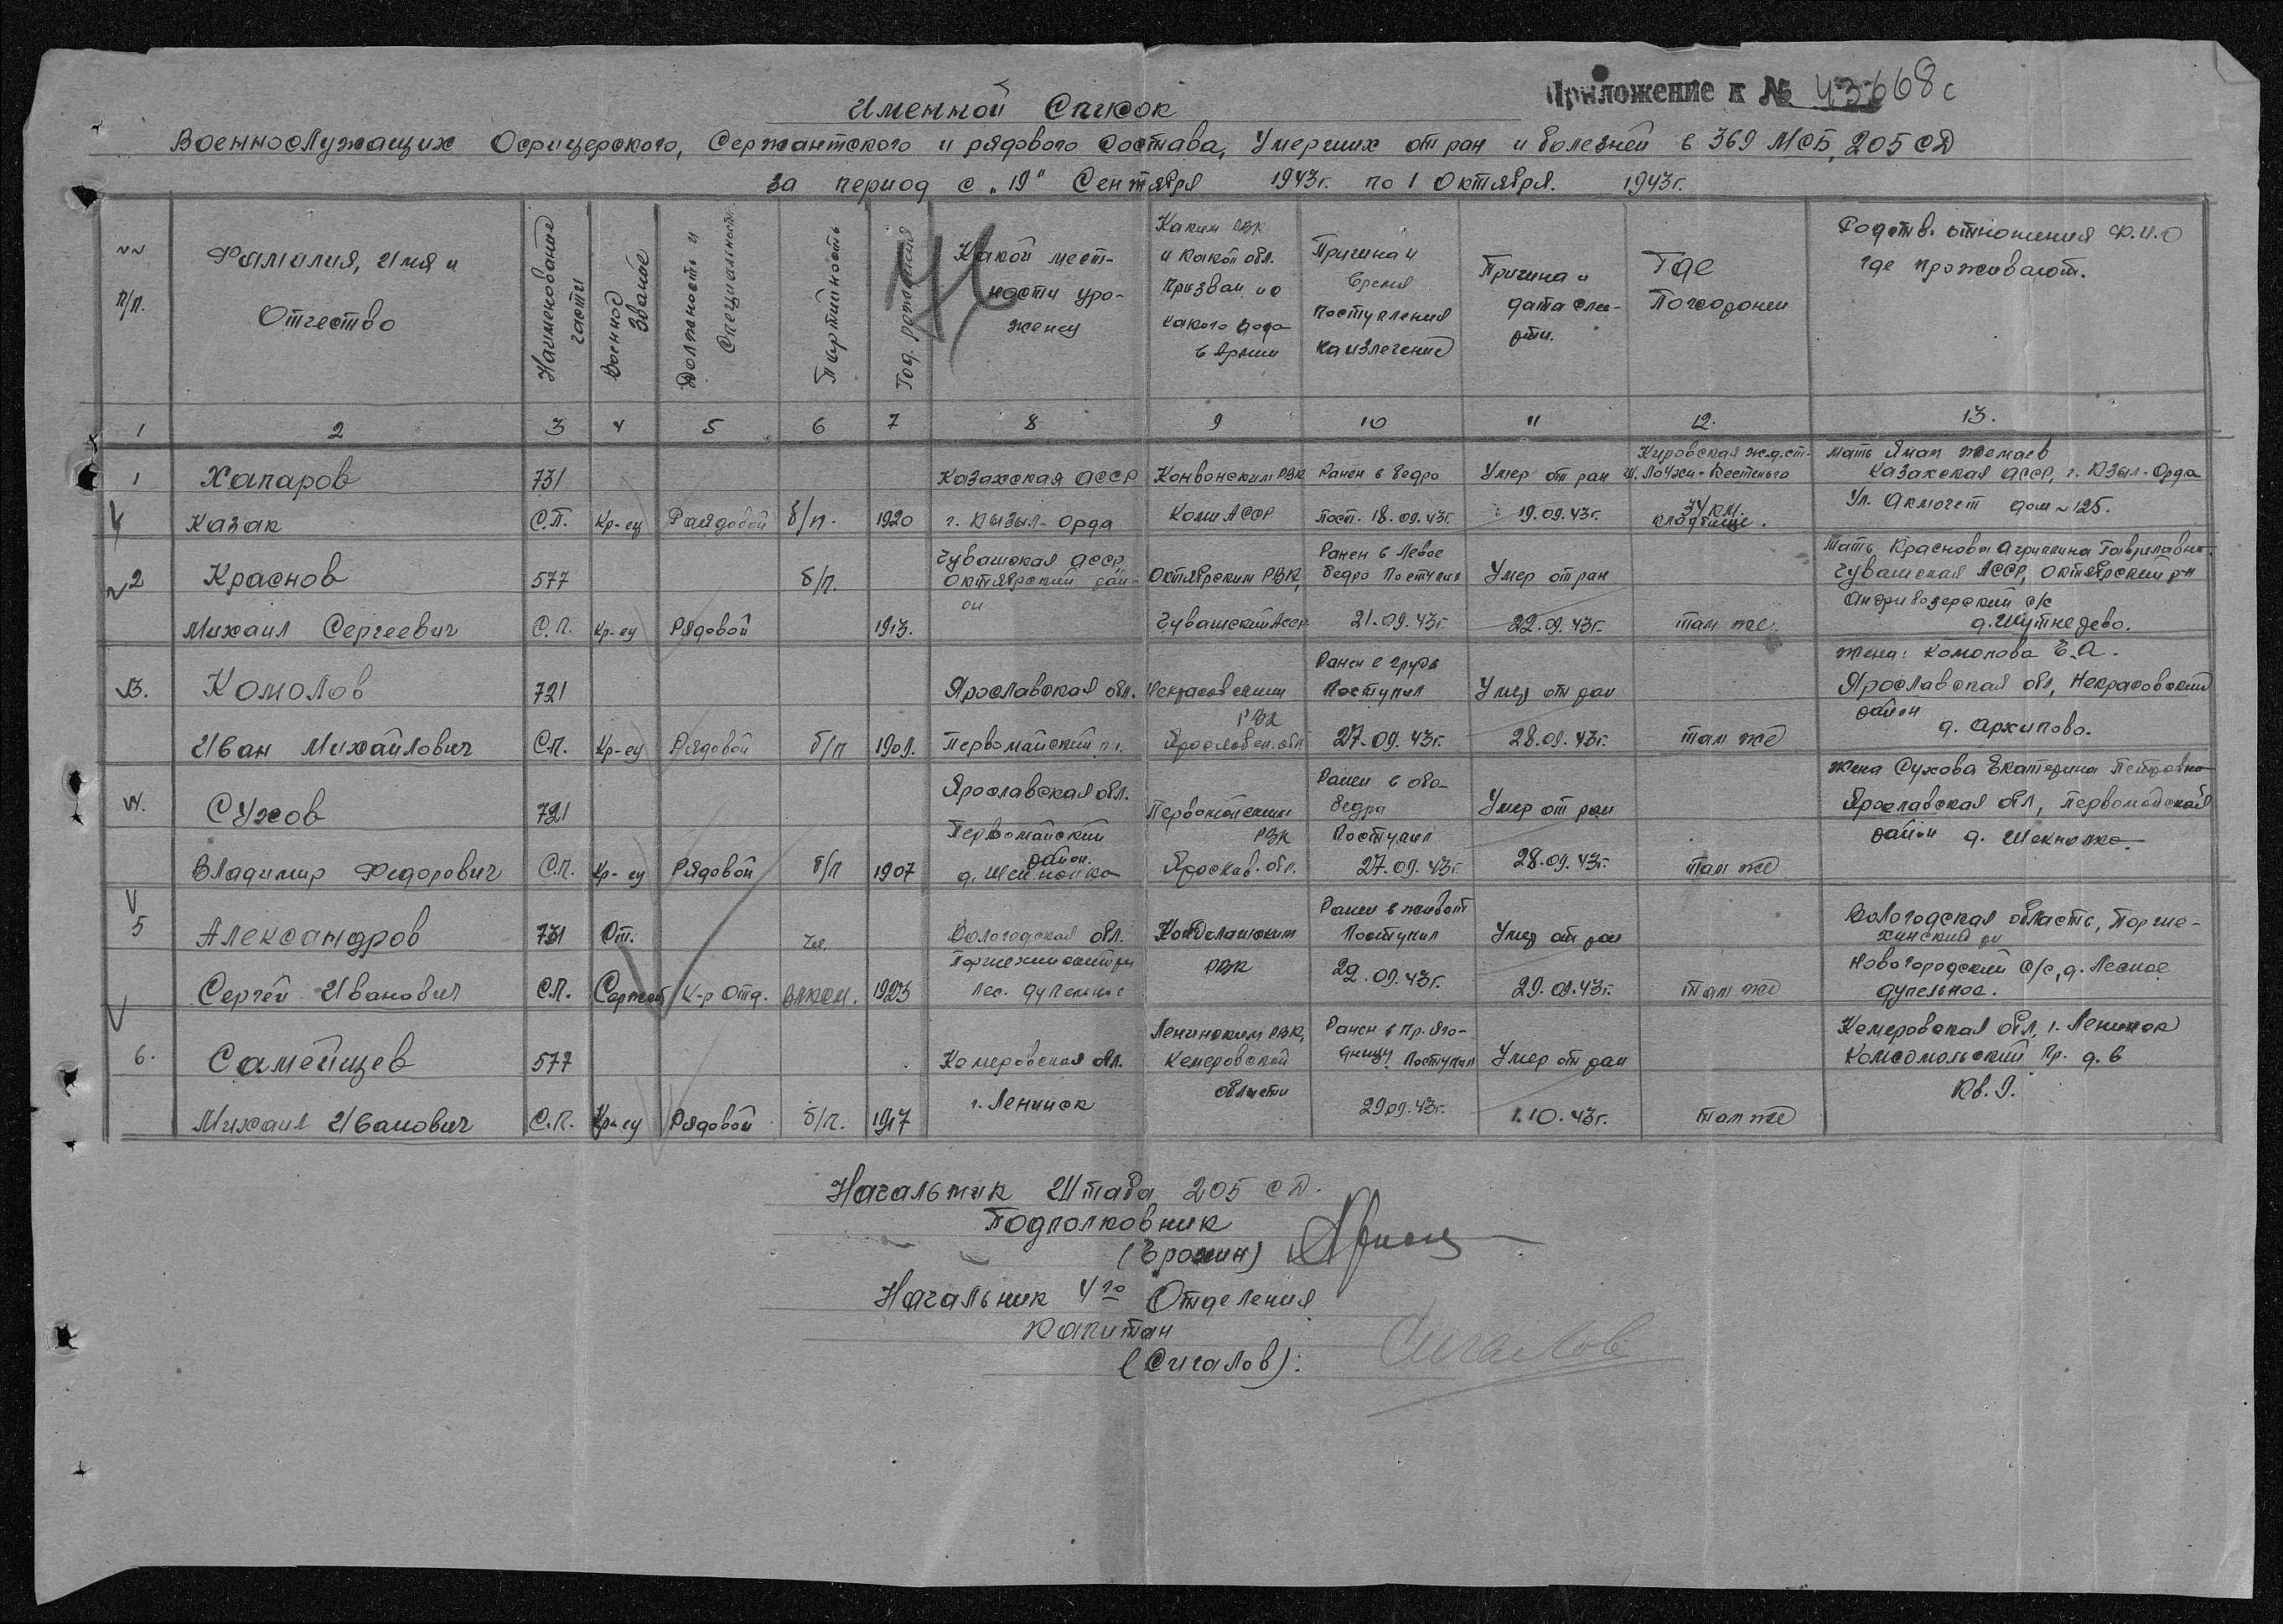 Приложение к № 43668с
Именной Список
Военнослужащих Офицерского, Сержантского и рядового состава, Умерших от ран и болезней в 369 МСБ, 205 СД
за период с „19" Сентября 1943г. по 1 Октября. 1943г.
№№ п/п.
Фамилия, Имя и Отчество
Наименование части
Военное звание
Должность и Специальность
Партийность
Год рождения
Какой мест-
ности уро-
женец
Каким РВК
и какой обл.
призван и с
какого года
в Армии
Причина и
время
поступления
на излечение
Причина и
дата сме-
рти.
Где
Похоронен
Родств. отношения Ф.И.О
где проживают.
1 2 3 4 5 6 7 8 9 10 11 12. 13.
1 Хапаров
Казак
731
С.П.
Кр-ец
Рядовой
б/п.
1920
Казахская АССР
г. Кзыл-Орда
РВК
Коми АССР
Ранен в бедро
Пост. 18.09.43г.
Умер от ран
19.09.43г.
Кировская ж.д. ст.
Лоухи-Кестеньга
34 км.
кладбище.
Мать
Казахская АССР, г. Кзыл-Орда
Ул. Акмечет дом №125.
2 Краснов
Михаил Сергеевич
577
С.П.
Кр-ец
Рядовой
б/п.
1913.
Чувашская АССР,
Октябрский рай-
он
Октябрским РВК
Чувашский АССР
Ранен в Левое
бедро Поступил
21.09.43г.
Умер от ран
22.09.43г.
там же.
Мать Краснова Агриппина Гавриловна.
Чувашская АССР, Октябрский р-н
с/с
3. Комолов
Иван Михайлович
721
СП.
Кр-ец
Рядовой
б/п
1901.
Ярославская обл.
Первомайский р-н.
Некрасовским
РВК
Ярославск. обл
Ранен в грудь
Поступил
27.09.43г.
Умер от ран
28.09.43г.
там же
Жена: Комолова Е.А.
Ярославская обл, Некрасовский
район
д. Архипово.
4. Сухов
Владимир Федорович
721
С.П.
Кр-ец
Рядовой
б/п
1907
Ярославская обл.
Первомайский
район.
Первомайским
РВК
Ярослав. обл.
Ранен в оба
бедра
Поступил
27.09.43г.
Умер от ран
28.09.43г.
там же
Жена Сухова Екатерина Петровна
Ярославская обл, Первомайский
район
5 Александров
Сергей Иванович
731
С.П.
Ст.
Сержант
К-р Отд.
чл.
ВЛКСМ.
1923
Вологодская обл.
РВК
Ранен в живот
Поступил
29.09.43г.
Умер от ран
29.09.43г.
там же
Вологодская область,
Новогородский с/с, д. Лесное
6. Самейщев
Михаил Иванович
577
С.П.
Кр-ец
Рядовой
б/п.
1917
Кемеровская обл.
г. Ленинск
Ленинским РВК,
Кемеровской
области
Ранен в пр. яго-
дицу Поступил
29.09.43г.
Умер от ран
1.10.43г.
там же
Кемеровская обл, г. Ленинск
Комсомольский пр. д. 6
кв. 9.
Начальник Штаба 205 СД.
Подполковник
Начальник 4го Отделения
Капитан
(Сигалов): Сигалов